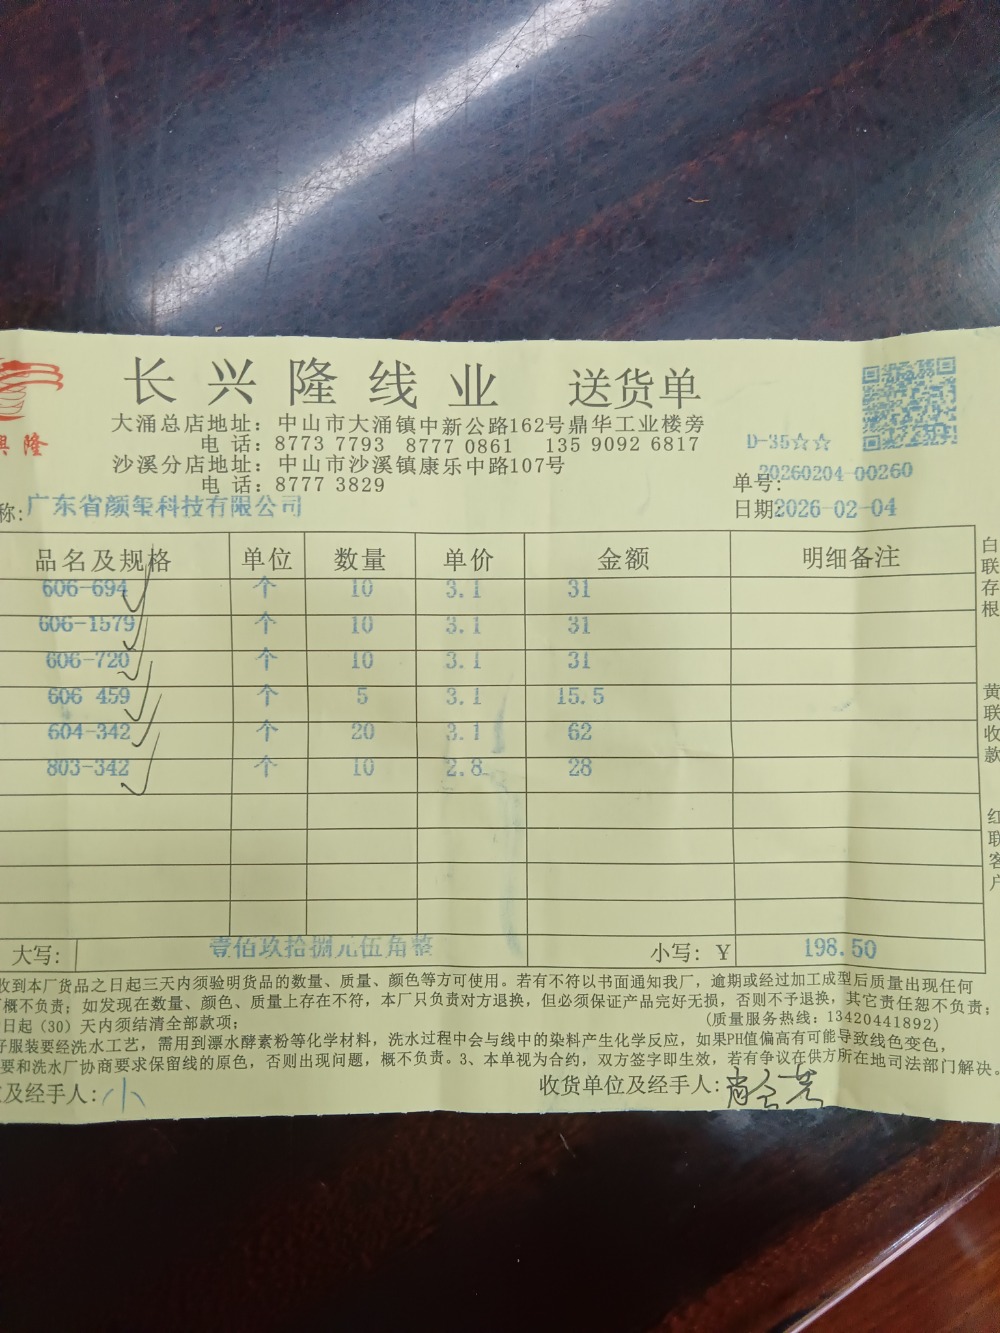 長興隆线业 送货单
大涌总店地址：中山市大涌镇中新公路162号鼎华工业楼旁
电 话：8773 7793 8777 0861 135 9092 6817
沙溪分店地址：中山市沙溪镇康乐中路107号
电 话：8777 3829
興隆
D-35☆☆
单号：20260204-00260
称：广东省颜玺科技有限公司
日期2026-02-04
品名及规格 单位 数量 单价 金额 明细备注
606-694 个 10 3.1 31
606-1579 个 10 3.1 31
606-720 个 10 3.1 31
606 459 个 5 3.1 15.5
604-342 个 20 3.1 62
803-342 个 10 2.8 28
大写： 壹佰玖拾捌元伍角整 小写：￥ 198.50
收到本厂货品之日起三天内须验明货品的数量、质量、颜色等方可使用。若有不符以书面通知我厂，逾期或经过加工成型后质量出现任何
概不负责；如发现在数量、颜色、质量上存在不符，本厂只负责对方退换，但必须保证产品完好无损，否则不予退换，其它责任恕不负责；
日起（30）天内须结清全部款项；
(质量服务热线：13420441892)
服装要经洗水工艺，需用到漂水酵素粉等化学材料，洗水过程中会与线中的染料产生化学反应，如果PH值偏高有可能导致线色变色，
要和洗水厂协商要求保留线的原色，否则出现问题，概不负责。3、本单视为合约，双方签字即生效，若有争议在供方所在地司法部门解决。
及经手人：小
收货单位及经手人：
白联存根
黄联收款
红联客户